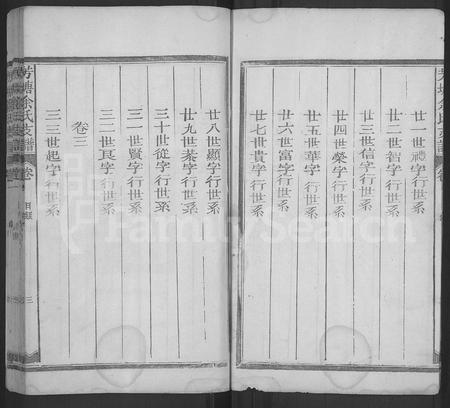 廿一世禮字行世系
廿二世智字行世系
廿三世信字行世系
廿四世榮字行世系
廿五世華字行世系
廿六世富字行世系
廿七世貴字行世系
廿八世顯字行世系
廿九世茶字行世系
三十世從字行世系
三一世賢字行世系
三二世良字行世系
卷三
三三世起字行世系
芳塘余氏支譜
卷
目錄
三
FamilySearch